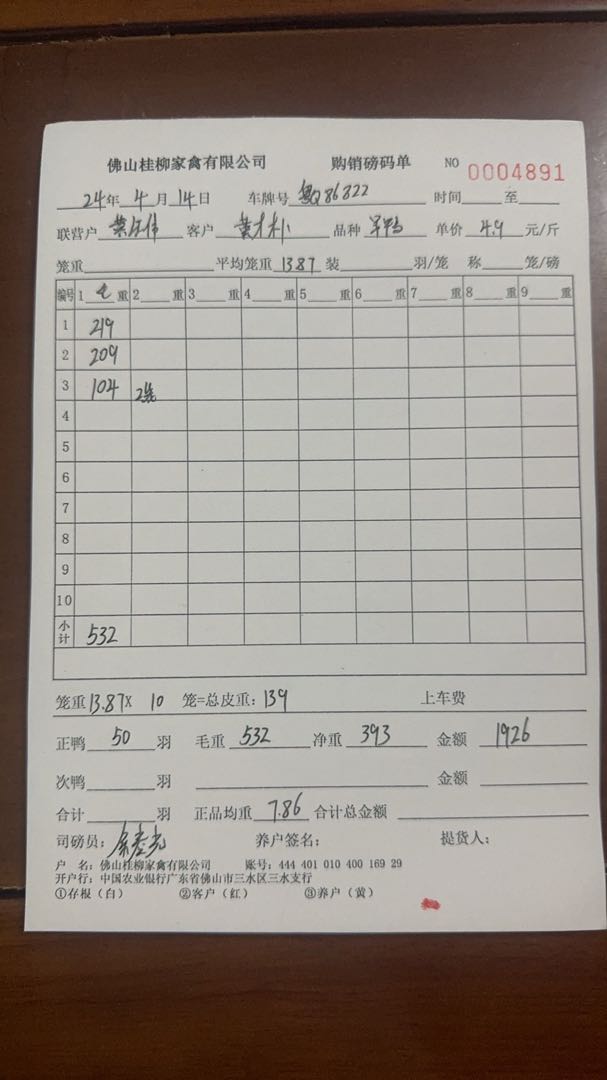 佛山桂柳家禽有限公司 购销磅码单 NO 0004891
24年 4月 14日 车牌号 Q86822 时间 至
联营户 客户 品种 单价 4.9 元/斤
笼重 平均笼重 13.87 装 羽/笼 称 笼/磅
编号 1 毛 重 2 重 3 重 4 重 5 重 6 重 7 重 8 重 9 重
1 219
2 209
3 104
4
5
6
7
8
9
10
小计 532
笼重 13.87 X 10 笼=总皮重: 139 上车费
正鸭 50 羽 毛重 532 净重 393 金额 1926
次鸭 羽 金额
合计 羽 正品均重 7.86 合计总金额
司磅员: 养户签名: 提货人:
户 名: 佛山桂柳家禽有限公司 账号: 444 401 010 400 169 29
开户行: 中国农业银行广东省佛山市三水区三水支行
①存根(白) ②客户(红) ③养户(黄)